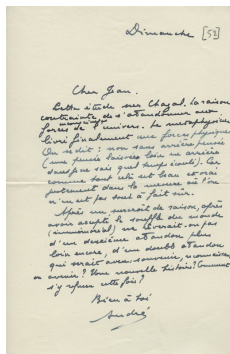 Dimanche [52]
Cher Jean.
Cette étude sur Chazal. La raison
contrainte de s'abandonner aux
forces de l'univers. Le métaphysicien
livré finalement aux forces physiques
On se dit : non sans arrière pensée
(une pensée laissée loin en arrière
sauf
comme tout cela est beau et vrai
justement dans la mesure où l'on
n'en est pas tout à fait sûr.
Après un surcroît de raison, après
avoir accepté le souffle du monde
(immémorial) ne devrait-on pas
d'un deuxième abandon plus
loin encore, d'un double abandon
qui serait avenir-souvenir,
ou avenir? Une nouvelle histoire? Comment
s'y refuser cette fois?
Bien à toi
André